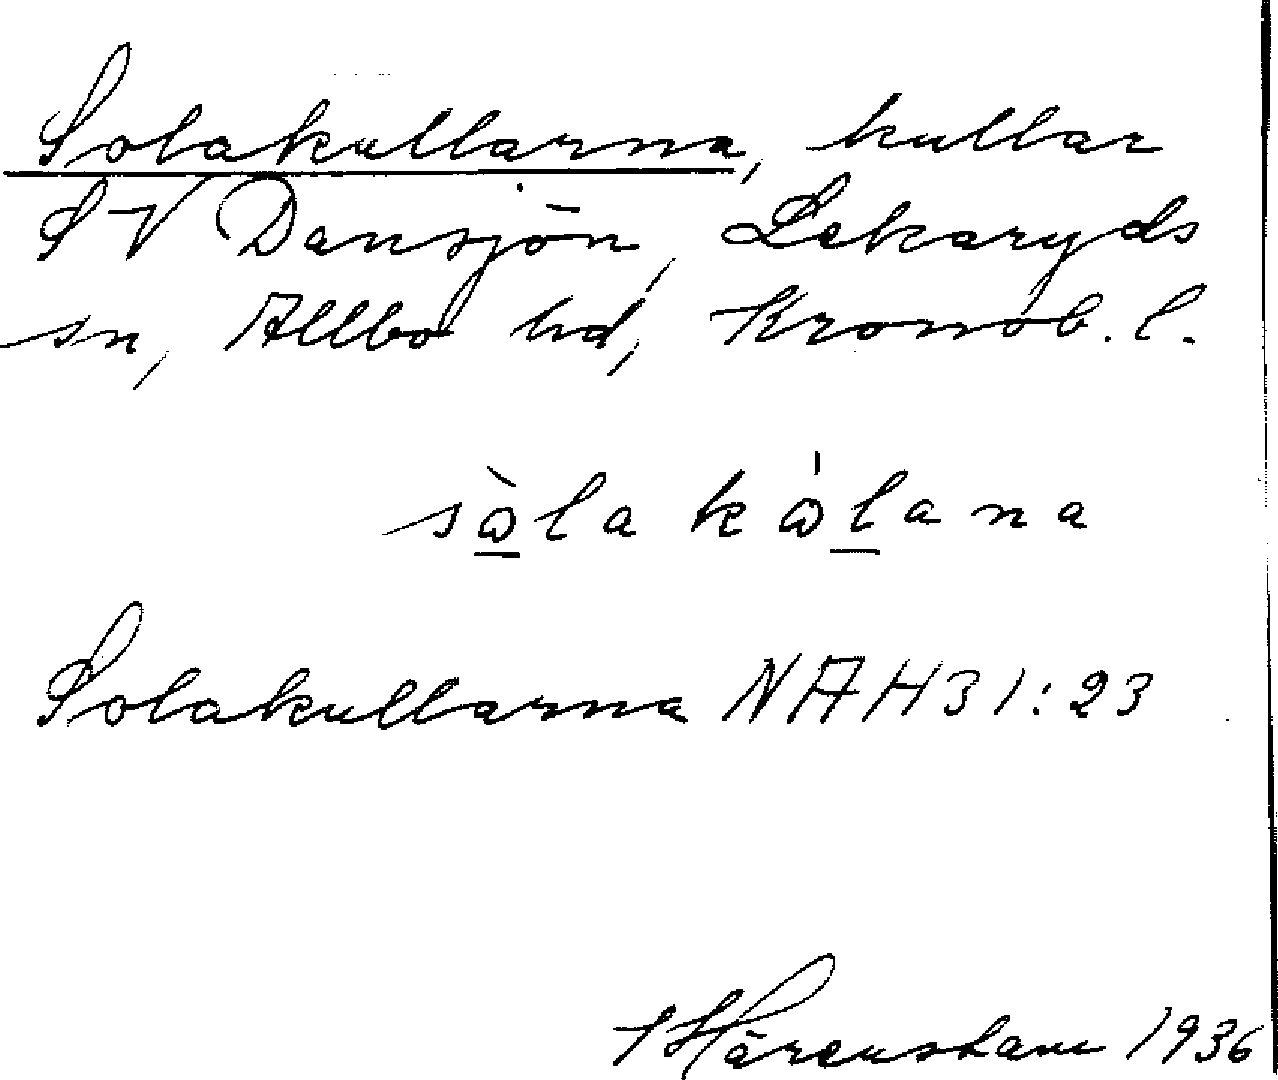 Solakullarna, kullar
SV Dansjön, Lekaryds
sn, Allbo hd, Kronob. l.
sòla kólana
Solakullarna NAH31:23
1936